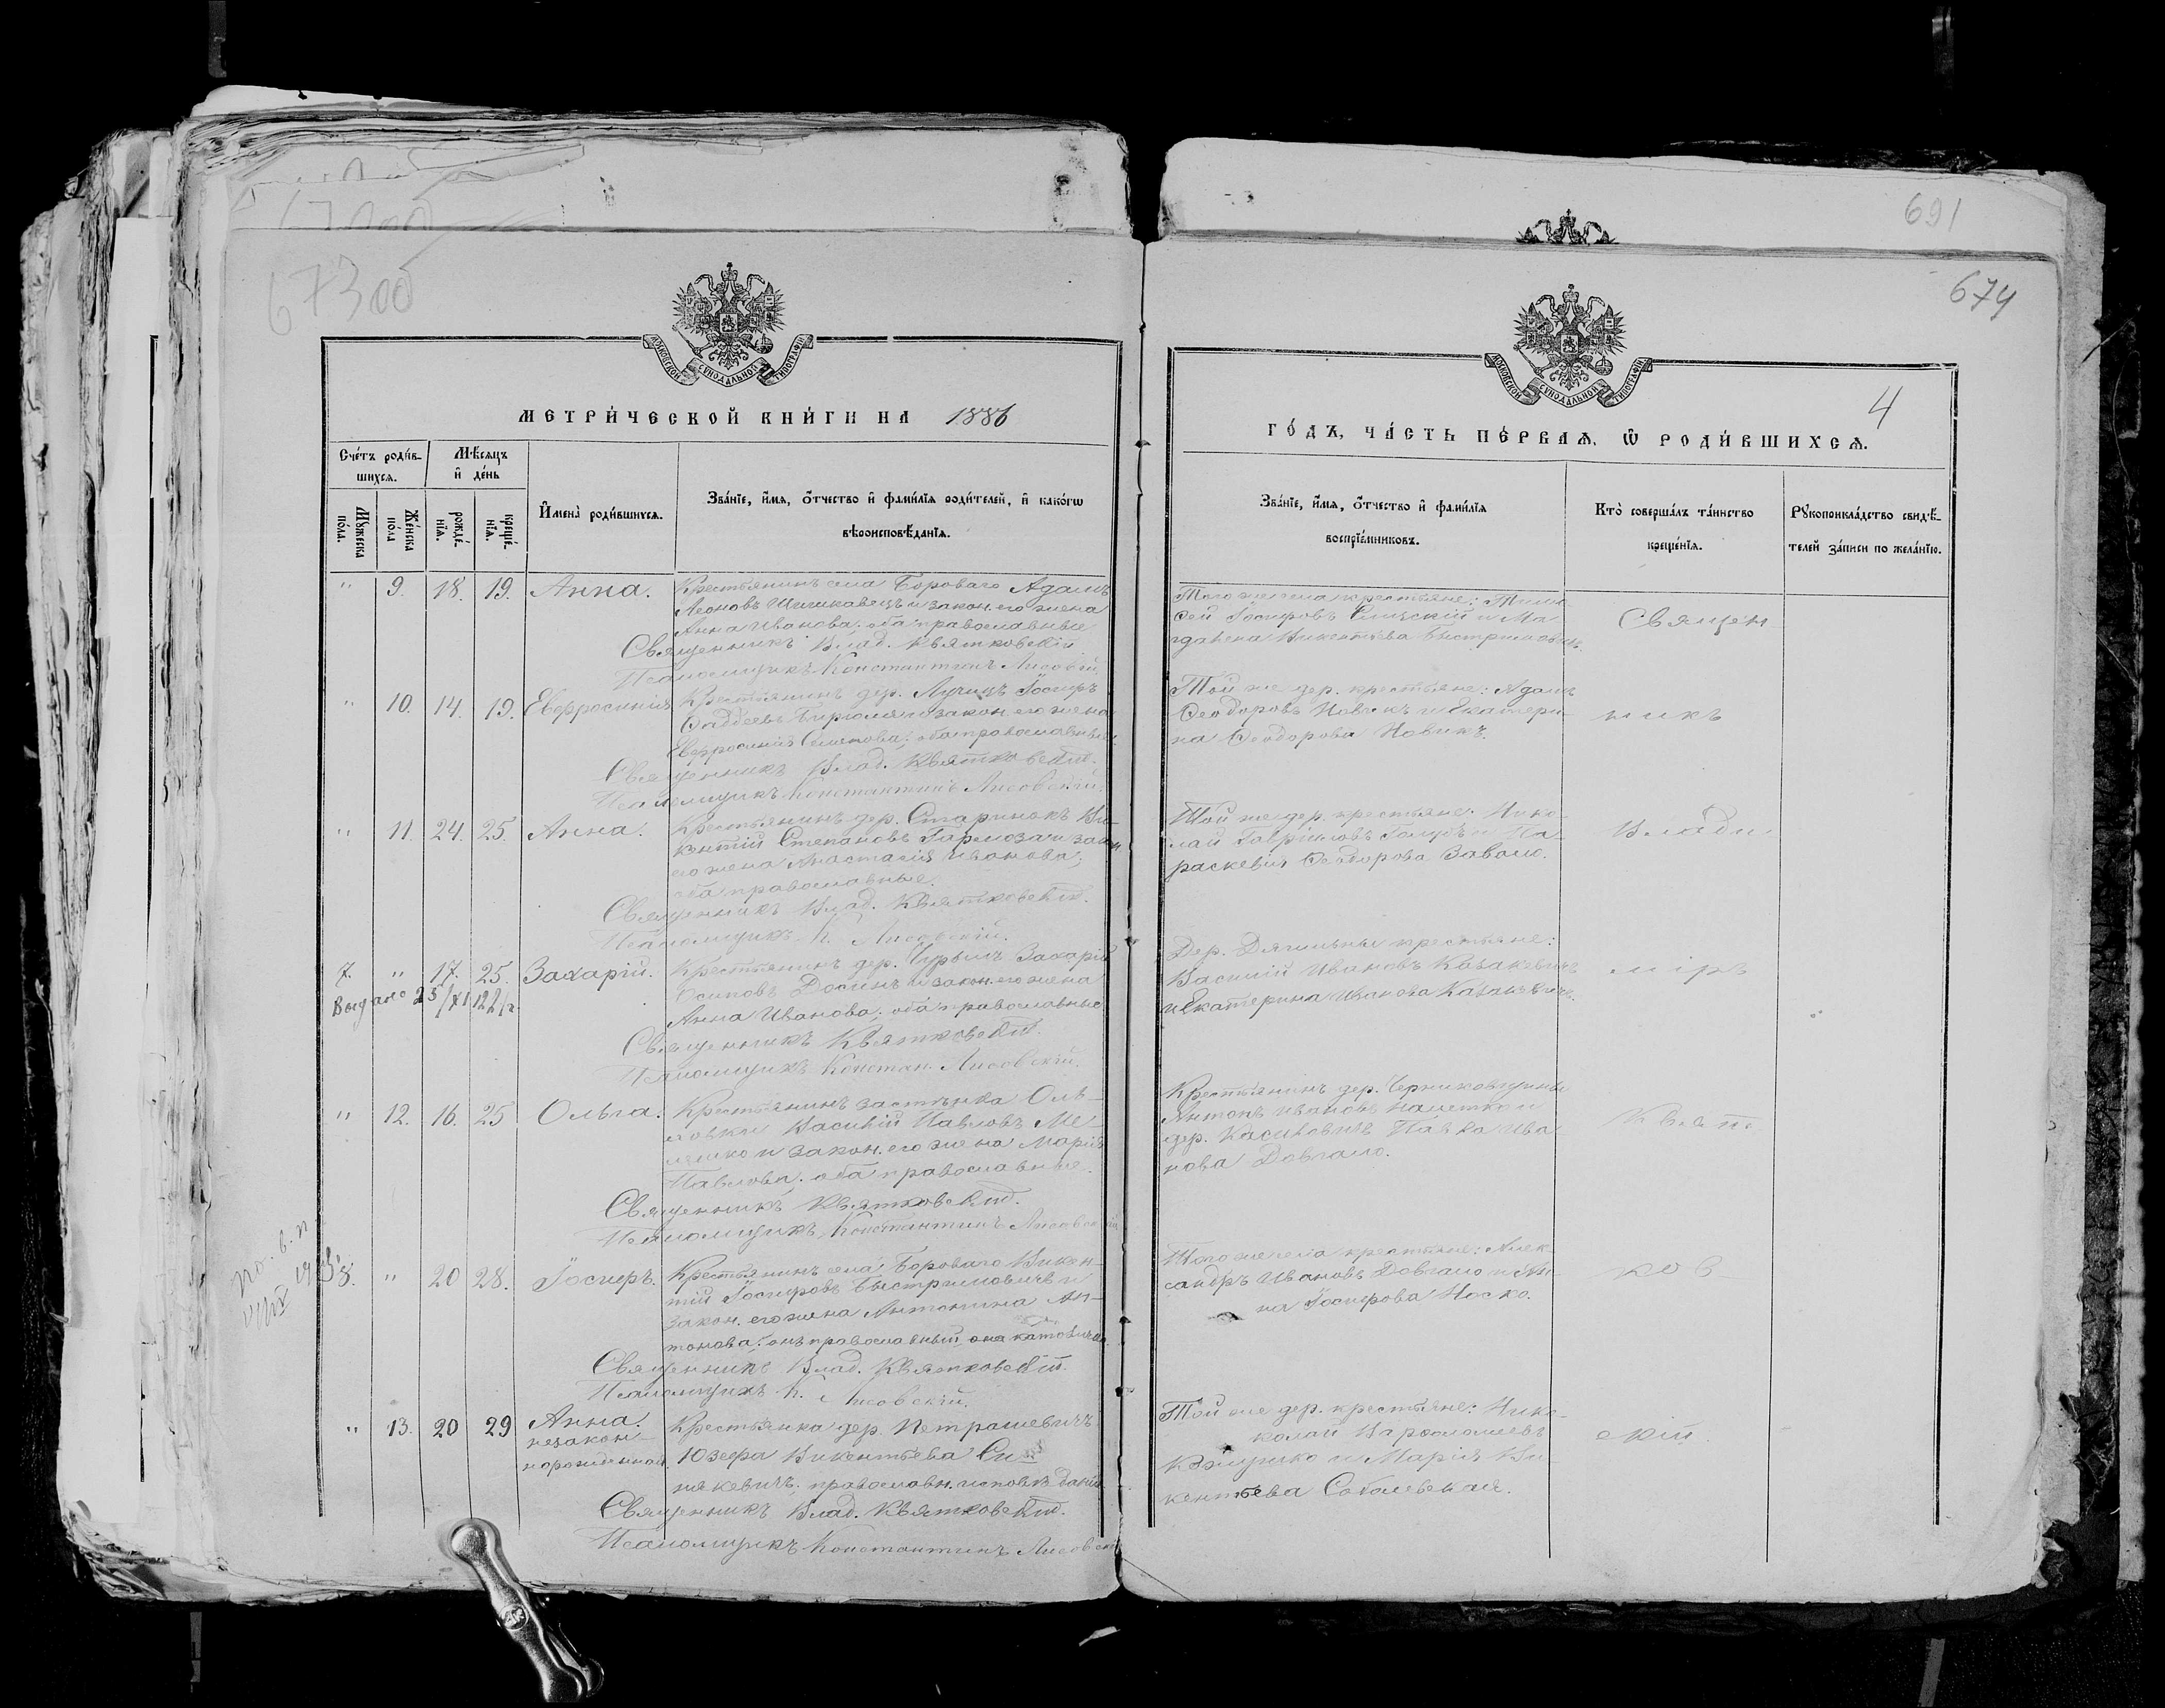 691
67300
674
МОСКОВСКОЙ СѴНОДАЛЬНОЙ ТИПОГРАФІИ
МОСКОВСКОЙ СѴНОДАЛЬНОЙ ТИПОГРАФІИ
4
МЕТРИ́ЧЕСКОЙ КНИ́ГИ НА 1886
ГО́ДЪ, ЧА́СТЬ ПЕ́РВАѦ, Ѿ РОДИ́ВШИХСѦ.
Сче́тъ роди́в-
шихсѧ.
Мѣ́сѧцъ
и҆ де́нь
Мꙋ́жеска
по́ла.
Же́нска
по́ла
рожде́-
нїѧ.
креще́-
нїѧ.
И҆мена̀ роди́вшихсѧ.
Зва́нїе, и҆́мѧ, ѻ҆́тчество и҆ фами́лїѧ роди́телей, и҆ како́гѡ
вѣроисповѣ́данїѧ.
Зва́нїе, и҆́мѧ, ѻ҆́тчество и҆ фами́лїѧ
воспрїе́мниковъ.
Кто̀ соверша́лъ та́инство
креще́нїѧ.
Рꙋкоприкла́дство свидѣ́-
телей за́писи по жела́нїю.
" 9. 18. 19. Анна.
Крестьянинъ села Бороваго Адамъ
Леоновъ и закон. его жена
Анна Иванова; оба православные
Священникъ Влад. Квятковскій
Псаломщикъ Константинъ Лисовскій
Того же села крестьяне: Тимо-
ѳей Іосифовъ и Ма-
гдалена Викентьева Быстримовичъ.
Священ
" 10. 14. 19. Евфросинія
Крестьянинъ дер. Лучицъ Іосифъ
Ѳаддеевъ и закон. его жена
Евфросинія Семенова; оба православные.
Священникъ Влад. Квятковскій.
Псаломщикъ Константинъ Лисовскій.
Той же дер. крестьяне: Адамъ
Ѳеодоровъ Новикъ и Екатери-
на Ѳеодорова Новикъ.
никъ
" 11. 24. 25. Анна.
Крестьянинъ дер. Старинокъ Ви-
кентій Степановъ и закон.
его жена Анастасія Иванова;
оба православные.
Священникъ Влад. Квятковскій.
Псаломщикъ К. Лисовскій.
Той же дер. крестьяне: Нико-
лай Гавріиловъ и Па-
раскевія Ѳеодорова
Влади
7. " 17. 25. Захарій.
Выдано 23/XI 122 г.
Крестьянинъ дер. Захарій
Осиповъ и закон. его жена
Анна Иванова; оба православные
Священникъ Квятковскій.
Псаломщикъ Констан. Лисовскій.
Дер. крестьяне:
Василій Ивановъ Казакевичъ
и Екатерина Иванова Казакевичъ.
міръ
" 12. 16. 25 Ольга.
Крестьянинъ застѣнка Оль-
Василій Павловъ Ме-
и закон. его жена Марія
Павлова; оба православные.
Священникъ Квятковскій.
Псаломщикъ Константинъ Лисовскій
Крестьянинъ дер. Черниковщины
Антонъ Ивановъ и
дер. Ива-
нова Довгало.
Квят
8. " 20 28. Іосифъ.
Крестьянинъ села Бороваго Викен-
тій Іосифовъ Быстримовичъ и
закон. его жена Антонина Ан-
тонова; онъ православный, она католичка.
Священникъ Влад. Квятковскій.
Псаломщикъ К. Лисовскій.
Того же села крестьяне: Алек-
сандръ Ивановъ Довгало и Ан-
на Іосифова Носко.
ков
" 13. 20 29 Анна.
незакон-
норожденная
Крестьянка дер. Петрашевичъ
Юзефа Викентьева Си-
някевичъ, православн. исповѣданія
Священникъ Влад. Квятковскій.
Псаломщикъ Константинъ Лисовскій
Той же дер. крестьяне: Нико-
лай Варѳоломеевъ
и Марія Ви-
кентьева Соболевская.
скій